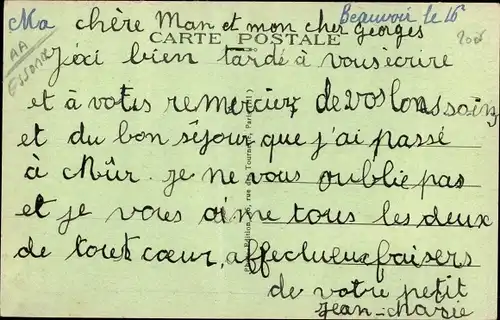 Ma chère Man et mon cher Georges
Beauvoir le 16
CARTE POSTALE
AA
Essonne
J'ai bien tardé à vous écrire
et à vous remercier de vos bons soins
et du bon séjour que j'ai passé
à Mûr. je ne vous oublie pas
et je vous aime tous les deux
de tout cœur, affectueux baisers
de votre petit
Jean-Marie